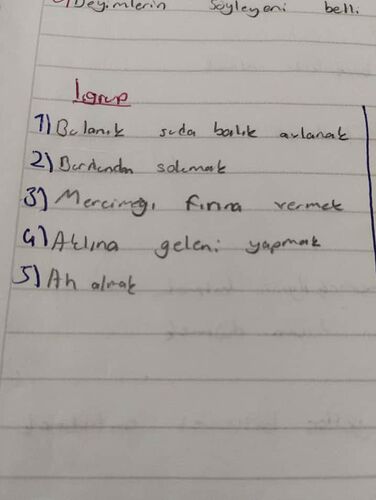 Deyimlerin söyleyeni belli
1.grup
1) Bulanık suda balık avlamak
2) Burnundan solumak
3) Merceimeği fırına vermek
4) Aklına geleni yapmak
5) Ah almak